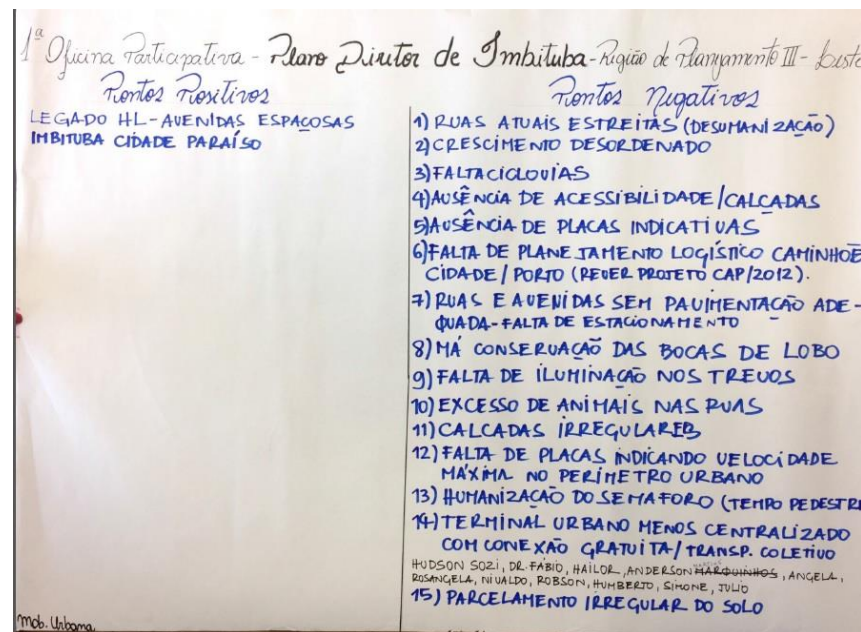 1ª Oficina Participativa - Plano Diretor de Imbituba - Região de Planejamento III - Leste
Pontos Positivos
LEGADO HL - AVENIDAS ESPAÇOSAS
IMBITUBA CIDADE PARAÍSO
Pontos Negativos
1) RUAS ATUAIS ESTREITAS (DESUMANIZAÇÃO)
2) CRESCIMENTO DESORDENADO
3) FALTA CICLOVIAS
4) AUSÊNCIA DE ACESSIBILIDADE / CALÇADAS
5) AUSÊNCIA DE PLACAS INDICATIVAS
6) FALTA DE PLANEJAMENTO LOGÍSTICO CAMINHOE
CIDADE / PORTO (REVER PROJETO CAP/2012).
7) RUAS E AVENIDAS SEM PAVIMENTAÇÃO ADE-
QUADA - FALTA DE ESTACIONAMENTO
8) MÁ CONSERVAÇÃO DAS BOCAS DE LOBO
9) FALTA DE ILUMINAÇÃO NOS TREVOS
10) EXCESSO DE ANIMAIS NAS RUAS
11) CALCADAS IRREGULARES
12) FALTA DE PLACAS INDICANDO VELOCIDADE
MÁXIMA NO PERÍMETRO URBANO
13) HUMANIZAÇÃO DO SEMAFORO (TEMPO PEDESTRE
14) TERMINAL URBANO MENOS CENTRALIZADO
COM CONEXÃO GRATUITA / TRANSP. COLETIVO
HUDSON SOZI, DR. FÁBIO, HAILOR, ANDERSON MARQUINHOS, ANGELA,
ROSANGELA, NIVALDO, ROBSON, HUMBERTO, SIMONE, JULIO
15) PARCELAMENTO IRREGULAR DO SOLO
Mob. Urbana